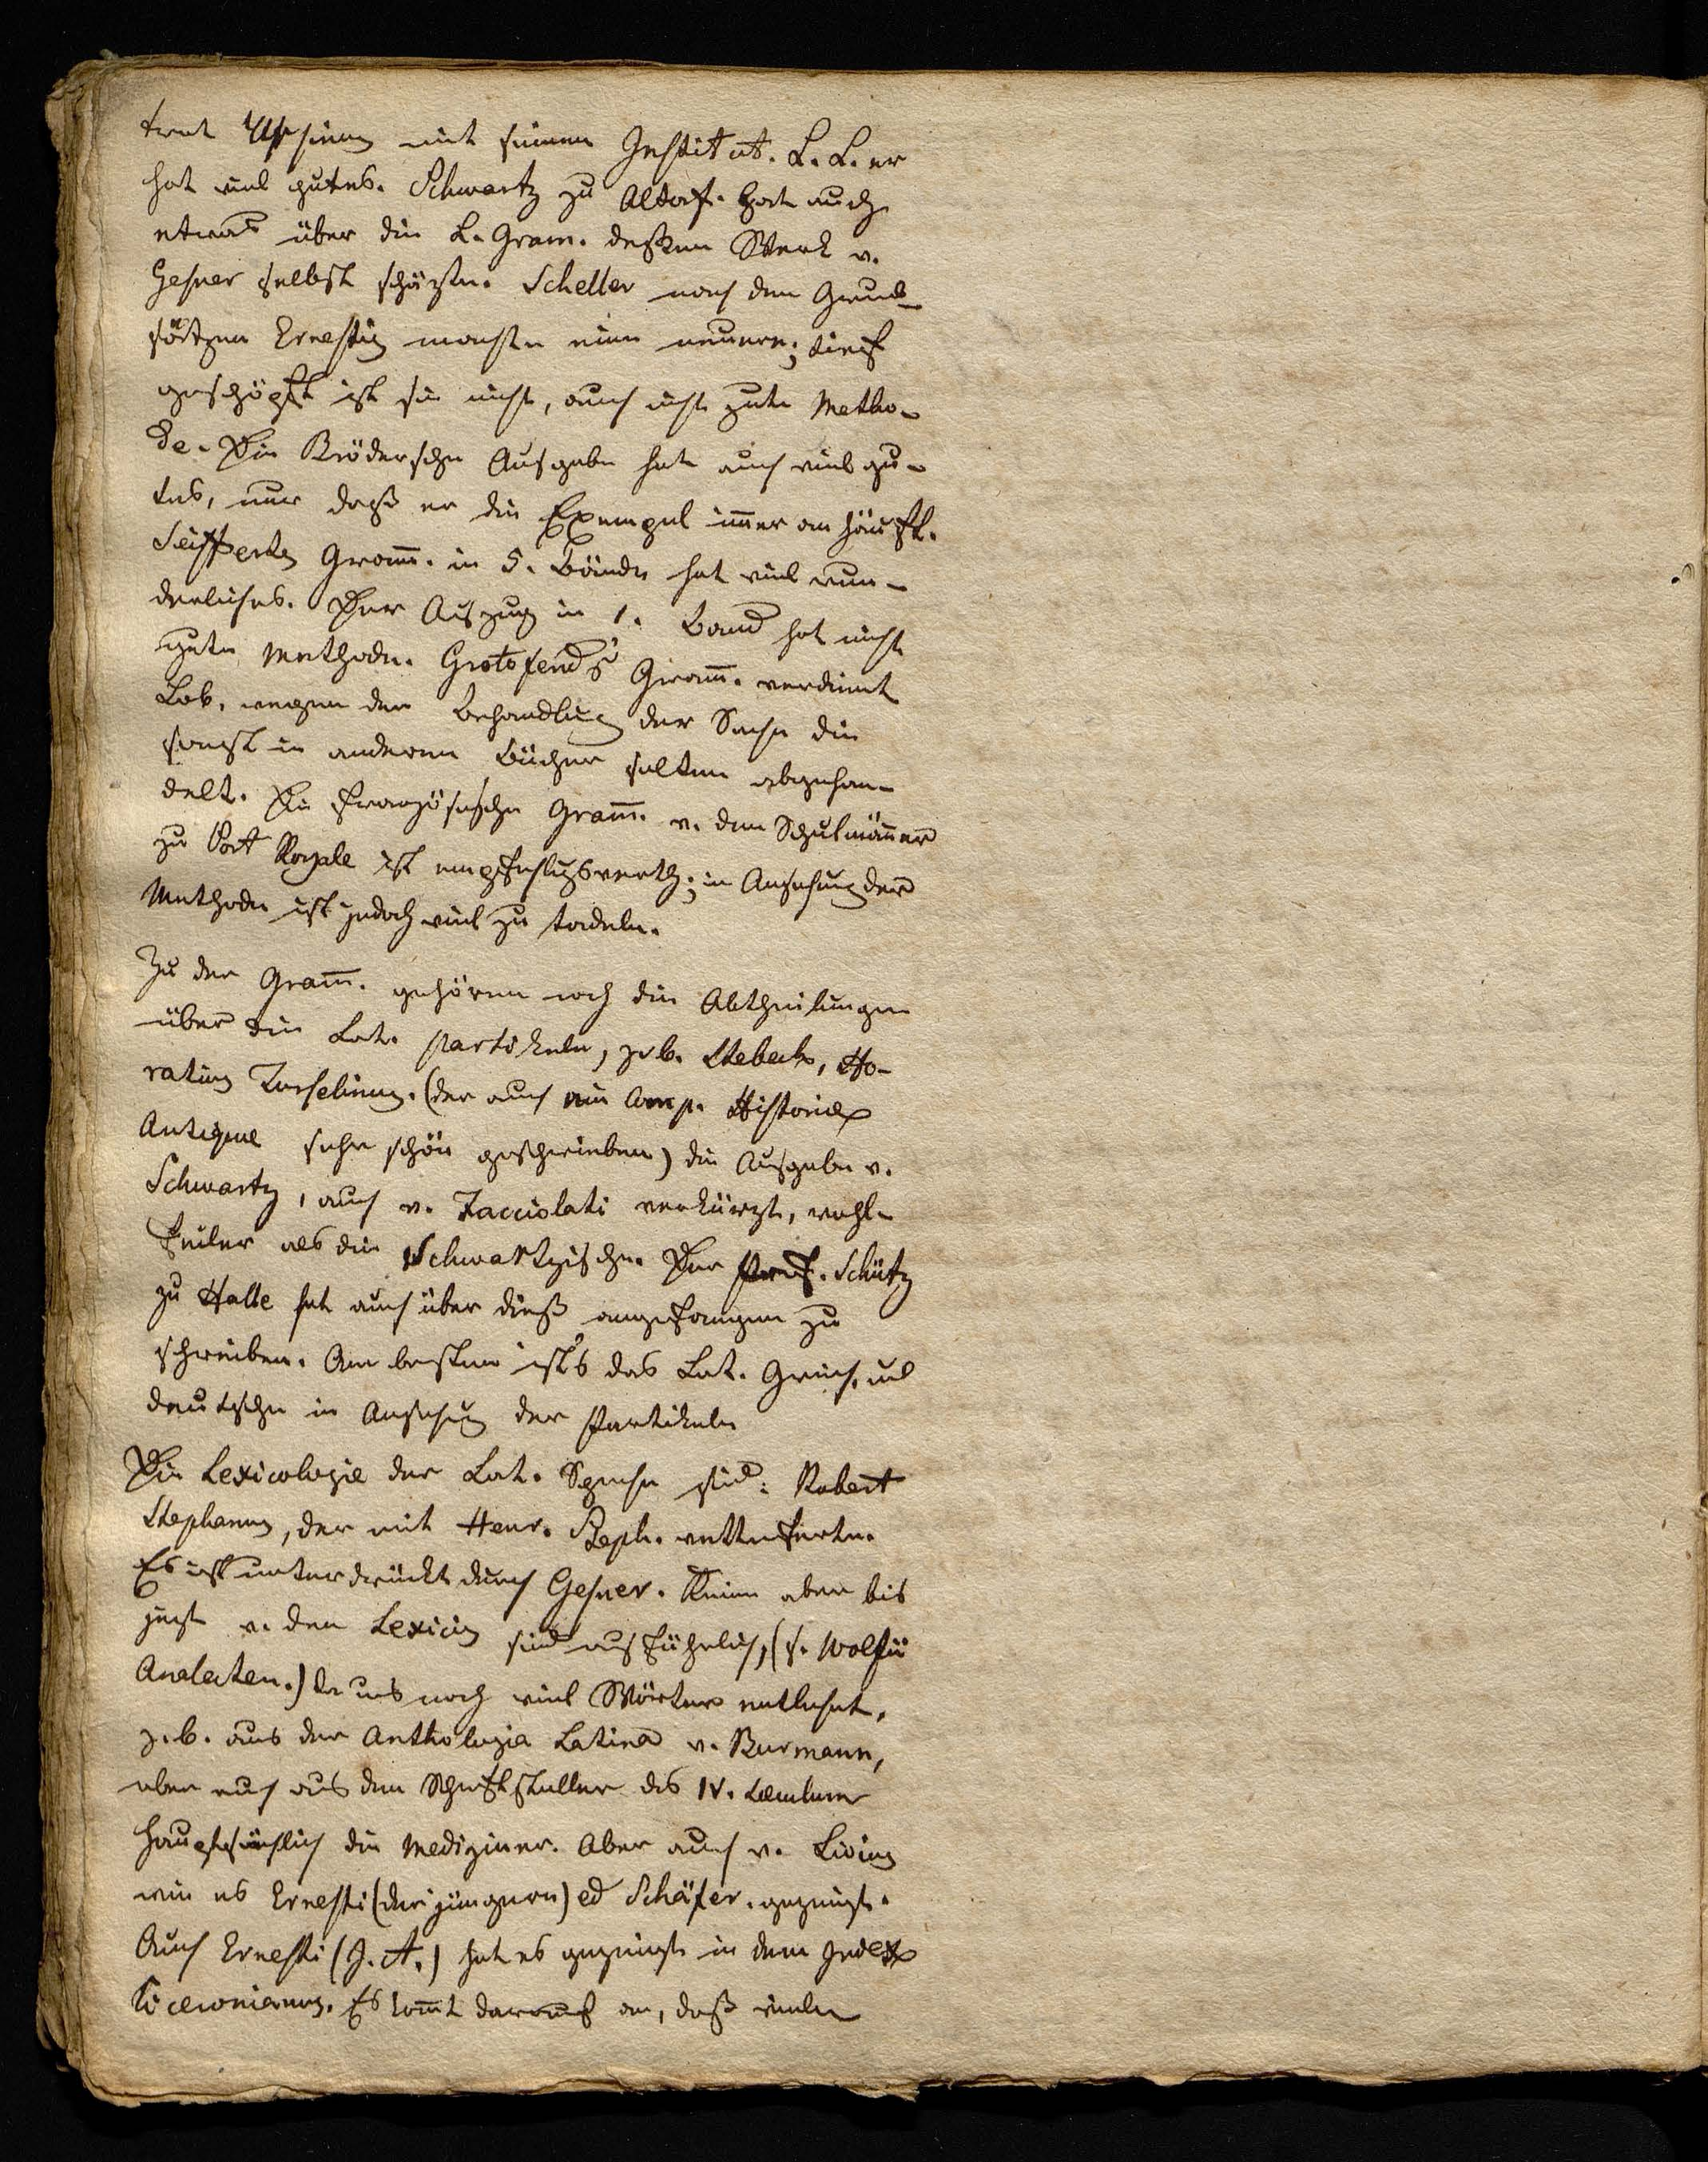 trat Ussing mit seinen Institut. L. L. er
hat viel gutes. Schwartz zu Altorf. hat auch
etwas über die L. Gram. deßen Werk v.
Gesner selbst schäzte. Scheller nach den Grund-
sätzen Ernestis machte eine neuere; tief
geschöpft ist sie nicht, auch nicht gute Metho-
de. Die Brödersche Ausgabe hat auch viel gu-
tes, nur daß er die Exempel immer anhäuft.
Seifferts Gramm. in 5. Bände hat viel wun-
derliches. Der Auszug in 1. Band hat nicht
gute Methode. Grotefend's Gramm. verdient
Lob, wegen der Behandlung der Sache die
sonst in anderen Bücher selten abgehan-
delt. Die französische Gramm. v. den Schulmänner
zu Port Royale ist empfehlungswerth; in Ansehung der
Methode ist jedoch viel zu tadeln.
Zu der Gramm. gehören noch die Abtheilungen
über die Lat. Partikeln, z. b. Ho-
ratius Turselinus. (der auch ein Comp. Historiae
Antiquae sehr schön geschrieben) die Ausgabe v.
Schwartz, auch v. Facciolati verkürzt, wohl-
feiler als die Schwartzische. Der Prof. Schütz
zu Halle hat auch über dieß angefangen zu
schreiben. Am besten ist's das Lat. Griech. und
deutsche in Ansehung der Partikeln
Die Lexicologie der Lat. Sprache sind: Robert
Stephanus, der mit Henr. Steph. wetteiferte.
Es ist unterdrückt durch Gesner. Keine aber bis
jezt v. den Lexicis sind ausführlich, (s. Wolfii
Analecten.) da uns noch viel Wörter entlehnt,
z. b. aus der Anthologia Latina v. Burmann,
aber auch aus den Schriftsteller des IV.
hauptsächlich die Mediziner. Aber auch v. Livius
wie es Ernesti (der jüngere) ed Schäfer. gezeigt.
Auch Ernesti (J. A.) hat es gezeigt in dem Index
Ciceronianus. Es kommt darauf an, daß viele